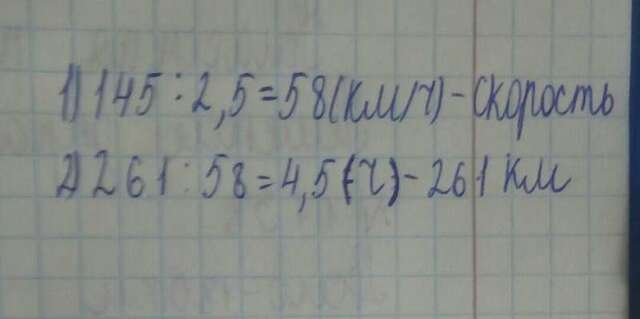 1) 145 : 2,5 = 58 (км/ч) - скорость
2) 261 : 58 = 4,5 (ч) - 261 км